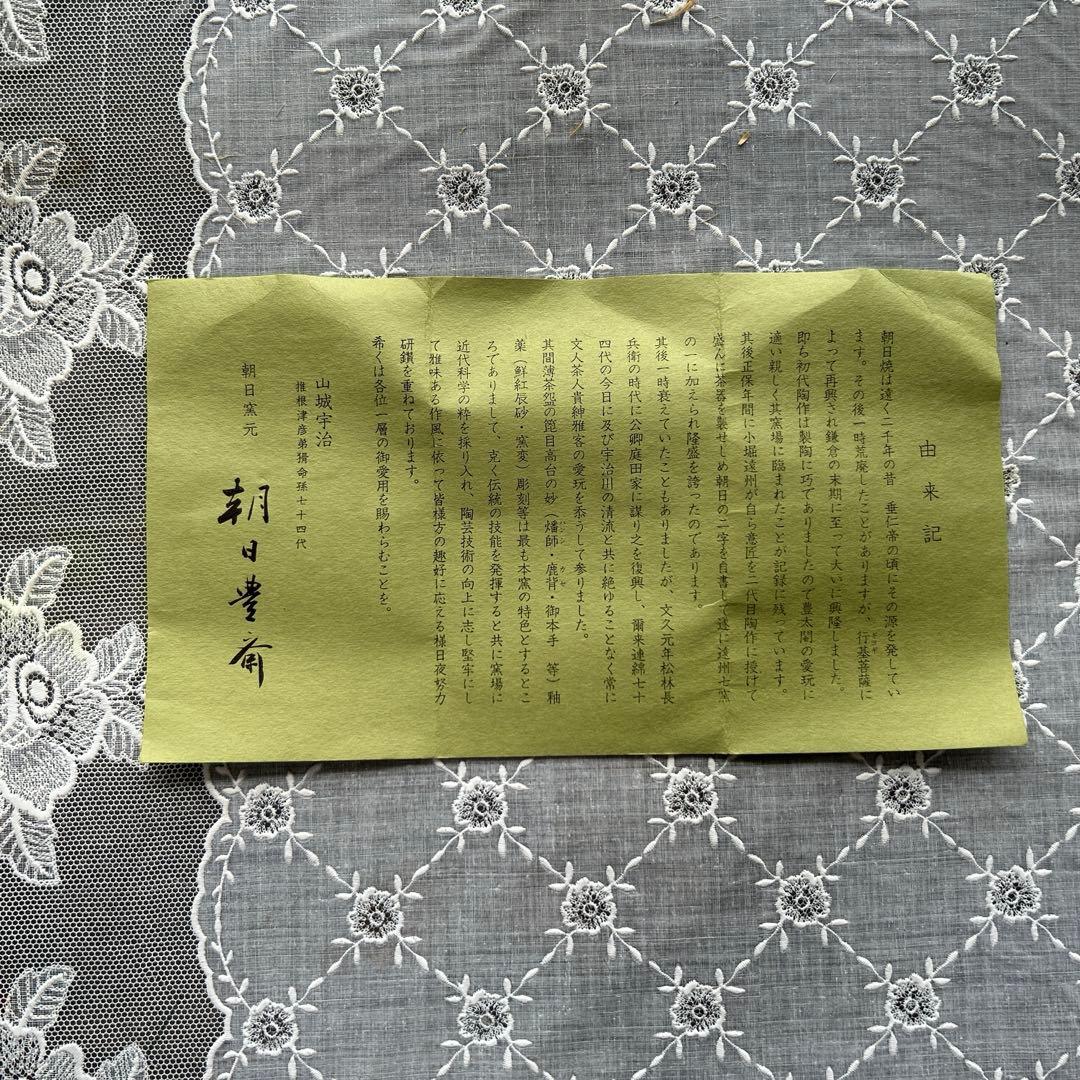 由来記
朝日焼は遠く二千年の昔　垂仁帝の頃にその源を発してい
ます。その後一時荒廃したことがありますが、行基菩薩に
よって再興され鎌倉の末期に至って大いに興隆しました。
即ち初代陶作は製陶に巧でありましたので豊太閤の愛玩に
適い親しく其窯場に臨まれたことが記録に残っています。
其後正保年間に小堀遠州が自ら意匠を二代目陶作に授けて
盛んに茶器を製せしめ朝日の二字を自書して遂に遠州七窯
の一に加えられ隆盛を誇ったのであります。
其後一時衰えていたこともありましたが、文久元年松林長
兵衛の時代に公卿庭田家に謀り之を復興し、爾来連綿七十
四代の今日に及び宇治川の清流と共に絶ゆることなく常に
文人茶人貴紳雅客の愛玩を忝うして参りました。
其間薄茶盌の箆目高台の妙（燔師・鹿背・御本手　等）釉
薬（鮮紅辰砂・窯変）彫刻等は最も本窯の特色とするとこ
ろでありまして、克く伝統の技能を発揮すると共に窯場に
近代科学の粋を採り入れ、陶芸技術の向上に志し堅牢にし
て雅味ある作風に依って皆様方の趣好に応える様日夜努力
研鑽を重ねております。
希くは各位一層の御愛用を賜わらむことを。
山城宇治
推根津彦弟猾命孫七十四代
朝日窯元
朝日豊斎